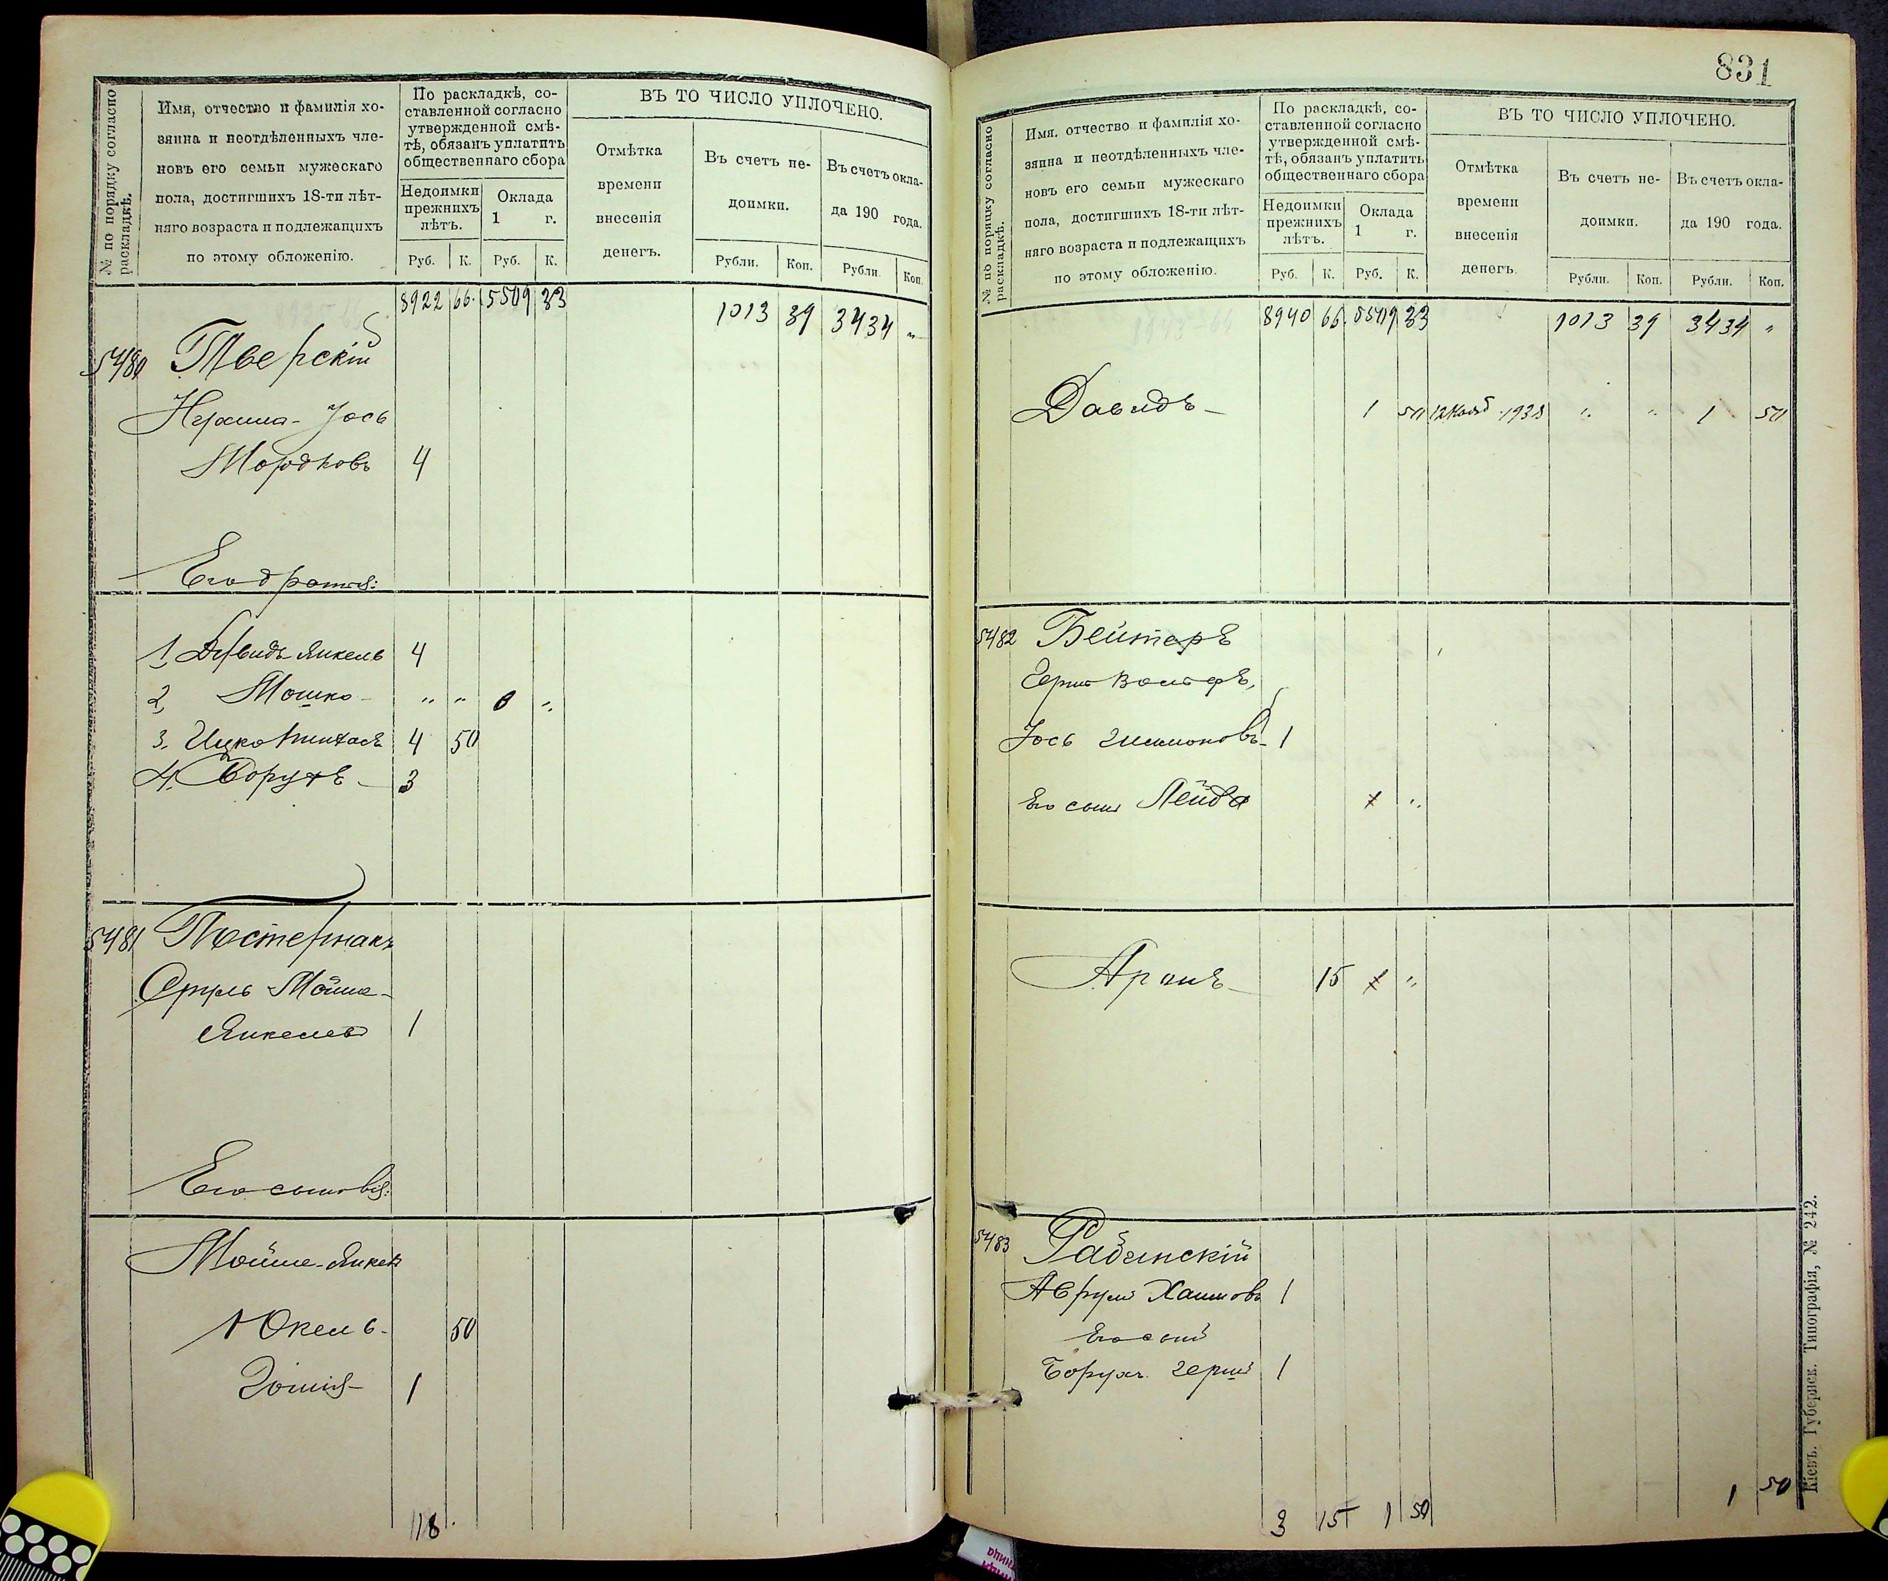 № по порядку согласно раскладкѣ.
Имя, отчество и фамилія хо-
зяина и неотдѣленныхъ чле-
новъ его семьи мужескаго
пола, достигшихъ 18-ти лѣт-
няго возраста и подлежащихъ
по этому обложенію.
По раскладкѣ, со-
ставленной согласно
утвержденной смѣ-
тѣ, обязанъ уплатить
общественнаго сбора
Недоимки
прежнихъ
лѣтъ.
Оклада
1 г.
Руб. К. Руб. К.
ВЪ ТО ЧИСЛО УПЛОЧЕНО.
Отмѣтка
времени
внесенія
денегъ.
Въ счетъ не-
доимки.
Въ счетъ окла-
да 190 года.
Рубли. Коп. Рубли. Коп.
8922 66 5509 33 1013 39 3434 "
5480 Тверскій
Мордковъ 4
Его братья:
1 Давидъ Янкель 4
2, Мошко - " "
3. Ицко Пинхасъ 4 50
4. Борухъ - 3
5481 Пастернакъ
Сруль Мойше-
Янкелевъ 1
Его сыновья:
Мойше-Янкель
Юкель- 50
1
18
831
№ по порядку согласно раскладкѣ.
Имя, отчество и фамилія хо-
зяина и неотдѣленныхъ чле-
новъ его семьи мужескаго
пола, достигшихъ 18-ти лѣт-
няго возраста и подлежащихъ
по этому обложенію.
По раскладкѣ, со-
ставленной согласно
утвержденной смѣ-
тѣ, обязанъ уплатить
общественнаго сбора
Недоимки
прежнихъ
лѣтъ.
Оклада
1 г.
Руб. К. Руб. К.
ВЪ ТО ЧИСЛО УПЛОЧЕНО.
Отмѣтка
времени
внесенія
денегъ.
Въ счетъ не-
доимки.
Въ счетъ окла-
да 190 года.
Рубли. Коп. Рубли. Коп.
8940 66 33 1013 39 3434 "
Давидъ - 1 50 " " 1 50
5482 Бейтеръ
Герш Вольфъ,
Іось 1
Его сынъ Лейба "
Аронъ - 15 "
5483 Рабинскій
Аврумъ Хаимовъ 1
Его сынъ
Борухъ Герш 1
3 15 1 50 1 50
Кіевъ. Губернск. Типографія, № 242.